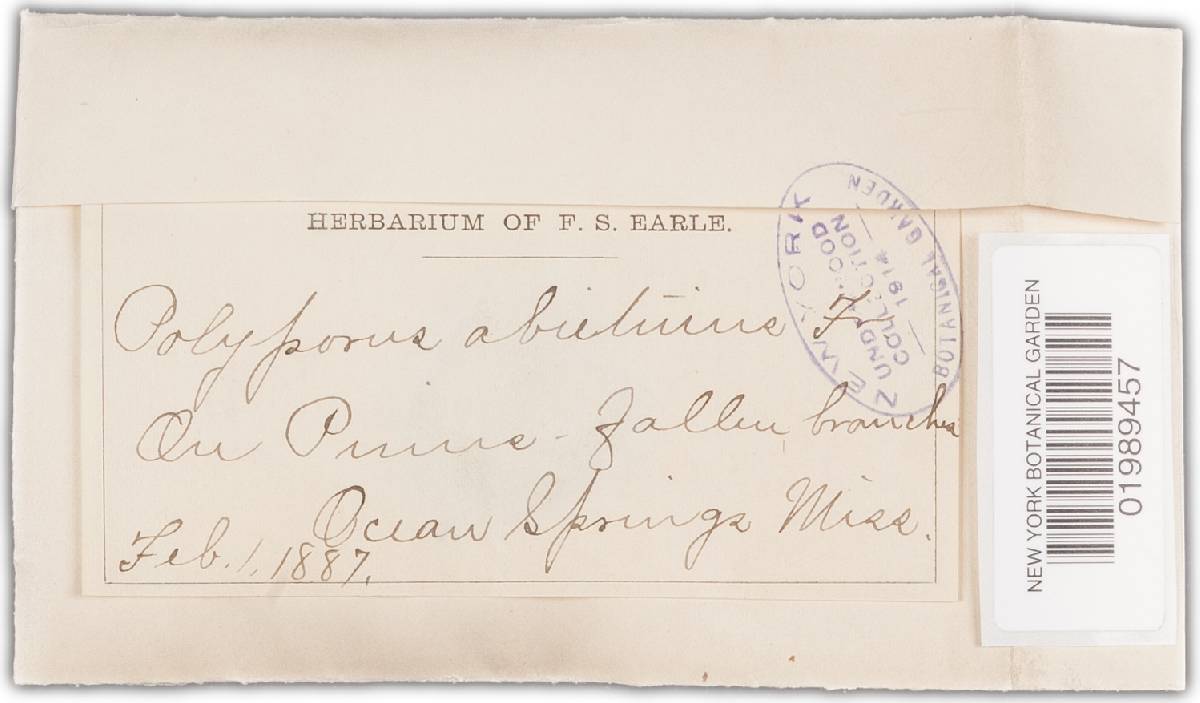 HERBARIUM OF F. S. EARLE.
Polyporus abietinus Fr
On Pinus - fallen branches
Ocean Springs Miss.
Feb. 1, 1887.
NEW YORK
BOTANICAL GARDEN
UNDERWOOD
COLLECTION
1914
NEW YORK BOTANICAL GARDEN
01989457